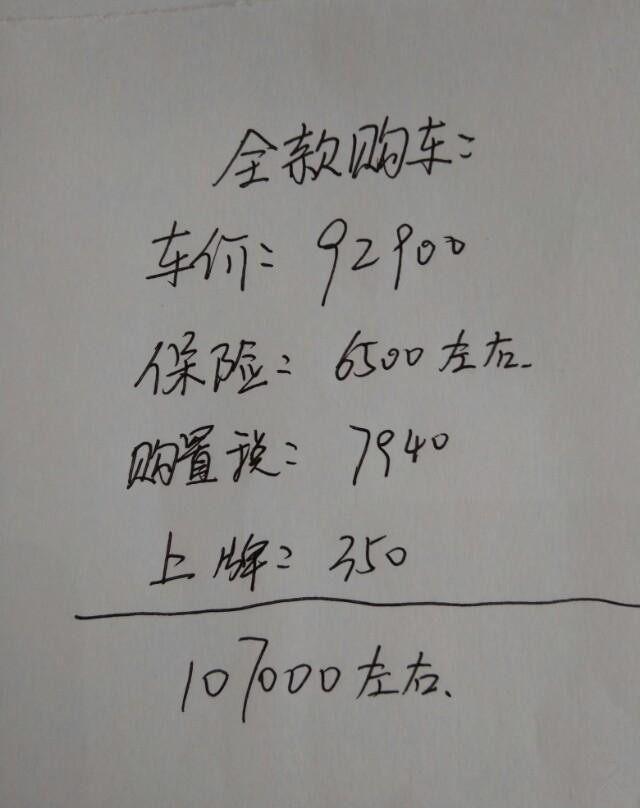 全款购车:
车价: 92900
保险: 6500左右.
购置税: 7940
上牌: 350
107000左右.